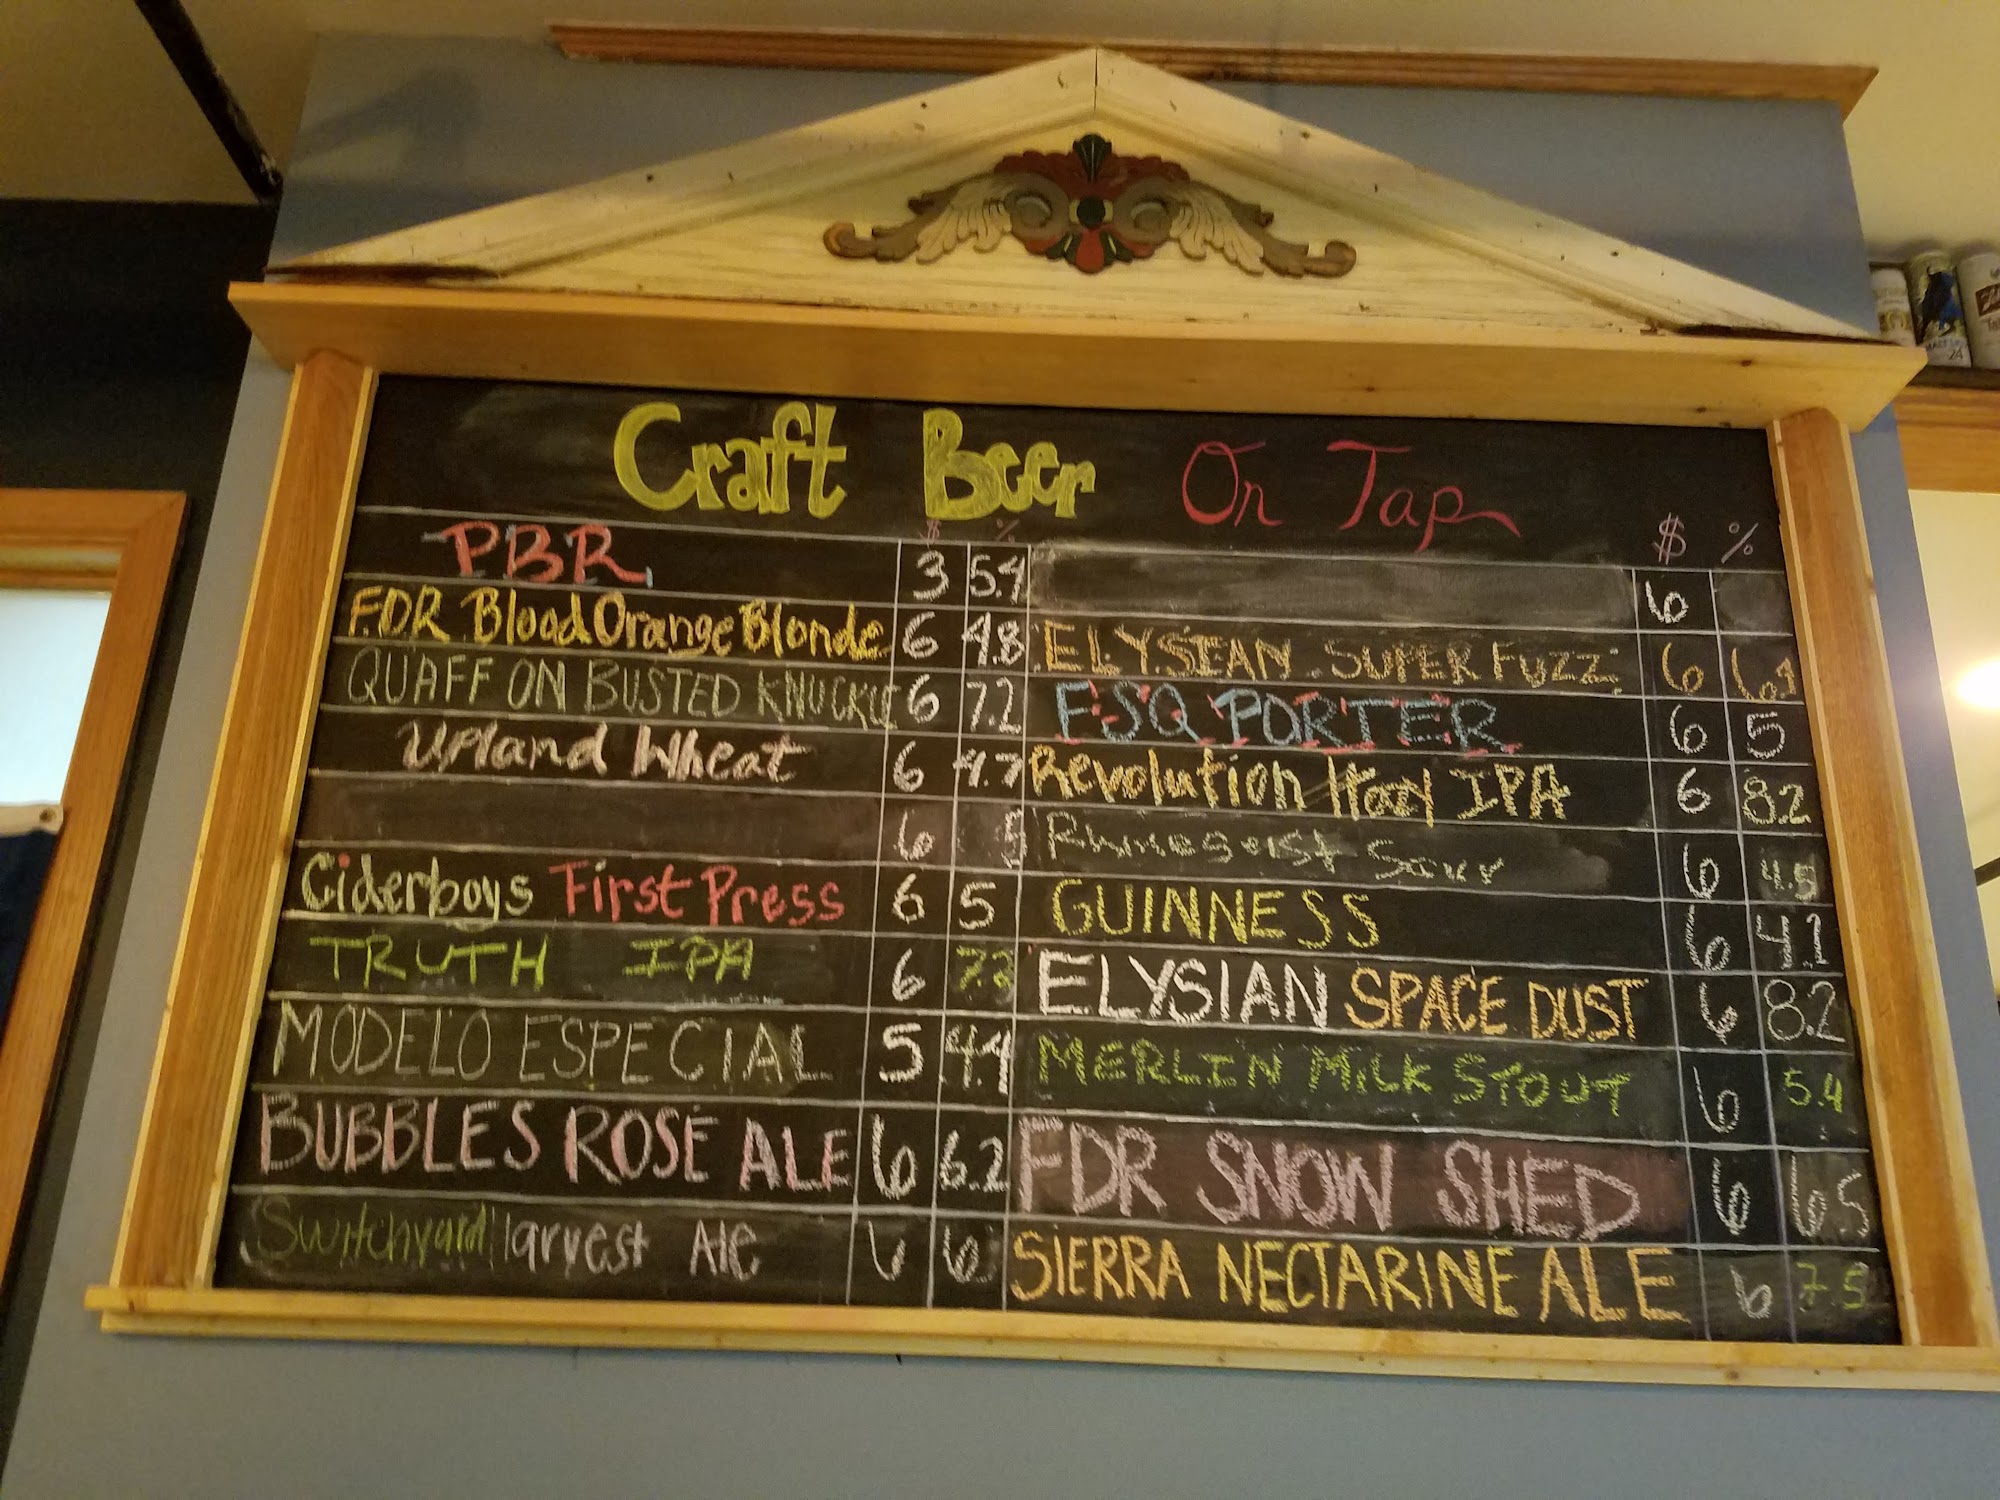 Craft Beer On Tap
$ %
PBR 3 5.4
FDR Blood Orange Blonde 6 4.8
QUAFF ON BUSTED KNUCKLE 6 7.2
Upland Wheat 6 4.7
6
Ciderboys First Press 6 5
TRUTH IPA 6 7.2
MODELO ESPECIAL 5 4.4
BUBBLES ROSE ALE 6 6.2
Switchyard Harvest Ale 6 6
$ %
6
ELYSIAN SUPER FUZZ 6 6.4
ESQ PORTER 6 5
Revolution Hazy IPA 6 8.2
Rhinegeist Sour 6
GUINNESS 6 4.2
ELYSIAN SPACE DUST 6 8.2
MERLIN MILK STOUT 6 5.4
FDR SNOW SHED 6 6.5
SIERRA NECTARINE ALE 6 7.5
24